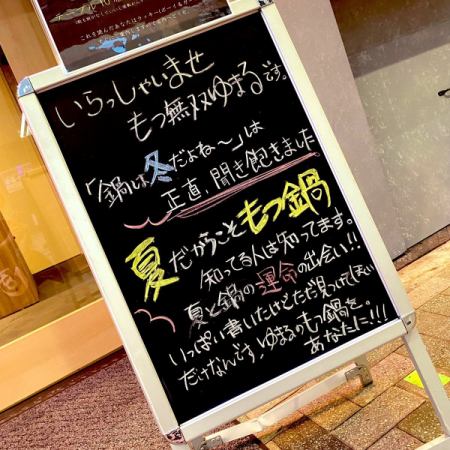 いらっしゃいませ
もつ無双ゆまるです。
「鍋は冬だよね〜」は
正直、聞き飽きました
夏だからこそもつ鍋
知ってる人は知ってます。
夏と鍋の運命の出会い!!
いっぱい書いたけどただ見つけてほしい
だけなんです、ゆまるのもつ鍋を。
あなたに!!!